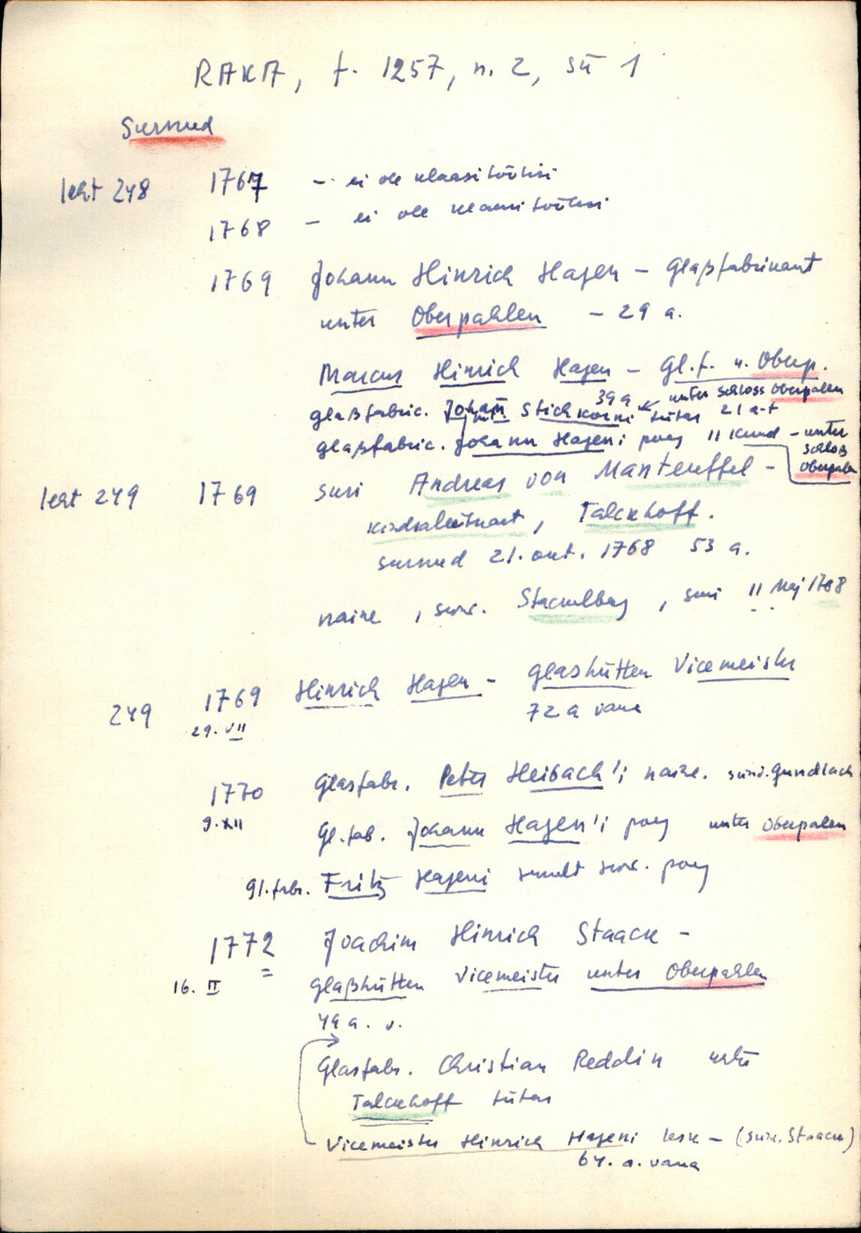 RAKA, f. 1257, n. 2, sü 1
Surnud
leht 248 1767 - ei ole klaasitöölisi
1768 - ei ole klaasitöölisi
1769 Johann Hinrich Hagen - Glaßfabrikant
unter Oberpahlen - 29 a.
Marcus Hinrich Hagen - Gl.f. u. Oberp.
39 a unter Schloss Oberpahlen
glaßfabric. Johann Stichkorni tütar 21 a-t
glaßfabric. Johann Hageni poeg 11 kuud - unter Schloß Oberpahlen
leht 249 1769 suri Andreas von Manteuffel -
kindralleitnant, Talckhoff.
surnud 21. okt. 1768 53 a.
naine, sünd. Stackelberg, suri 11 Maj 1768
249 1769 Hinrich Hagen - glashütten Vicemeister
29. VII 72 a vana
1770 Glasfabr. Peter Heibach'i naine. sünd. Gundlach
9. XII Gl. fab. Johann Hagen'i poeg unter Oberpahlen
gl. fabr. Fritz Hageni surnult sünd. poeg
1772 Joachim Hinrich Staack -
16. II glaßhütten Vicemeister unter Oberpahlen
49 a. v.
Glasfabr. Christian Reddlin unter
Talckhoff tütar
Vicemeister Hinrich Hageni lesk - (sünd. Staack)
64. a. vana